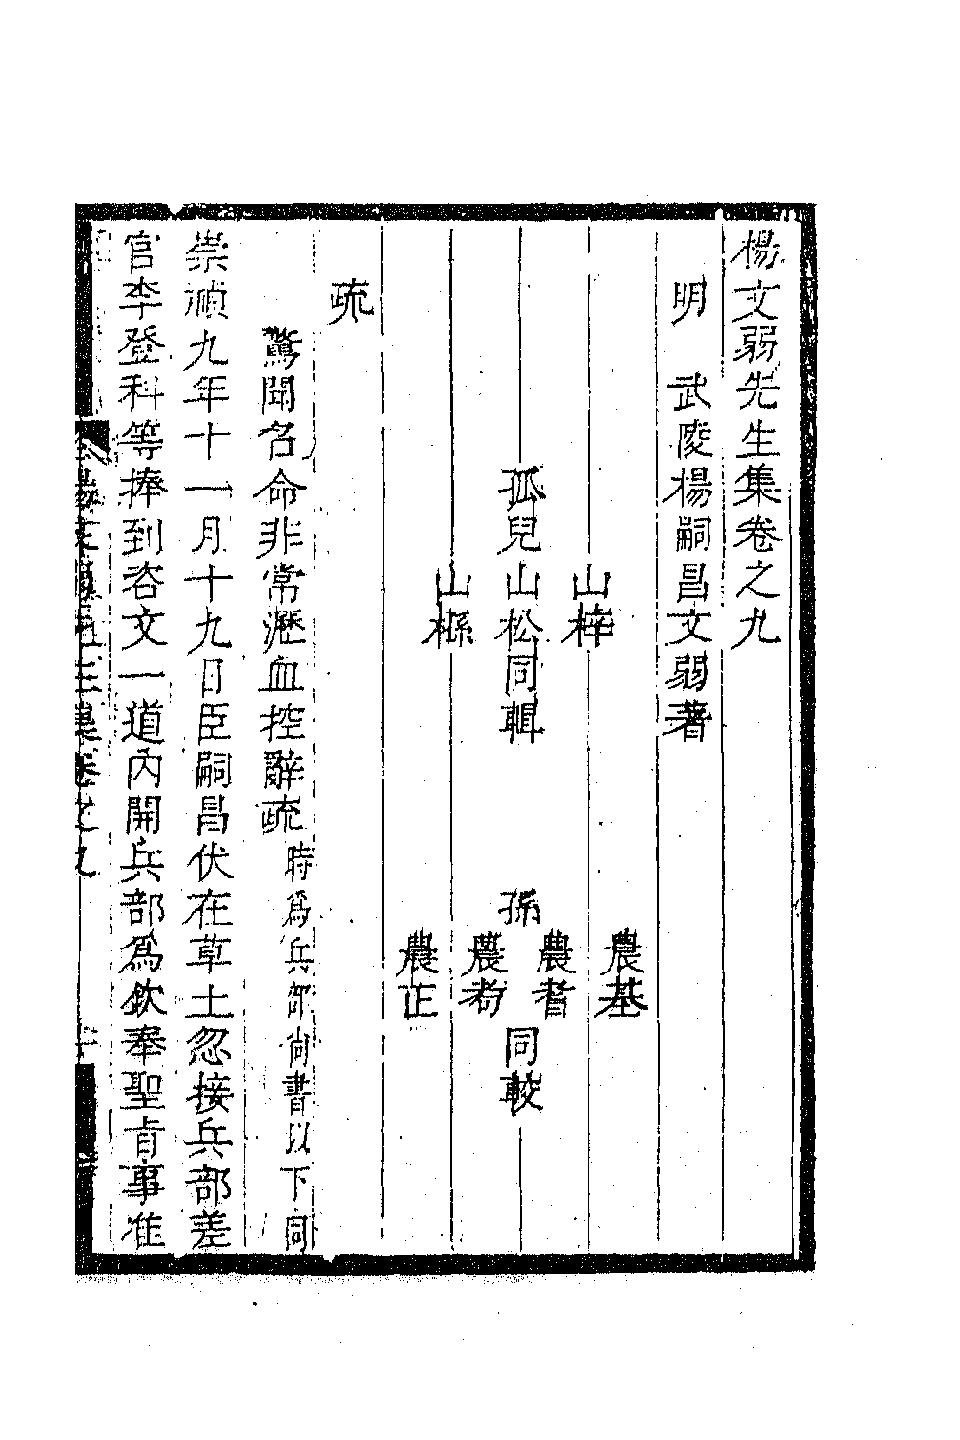 楊文弱先生集卷之九
明　武陵楊嗣昌文弱著
農基
山梓
農耆
孤兒山松同輯　孫　同較
農耇
山櫾
農正
疏
驚聞名命非常瀝血控辭疏時爲兵部尚書以下同
崇禎九年十一月十九日臣嗣昌伏在草土忽接兵部差
官李登科等捧到咨文一道內開兵部爲欽奉聖旨事准